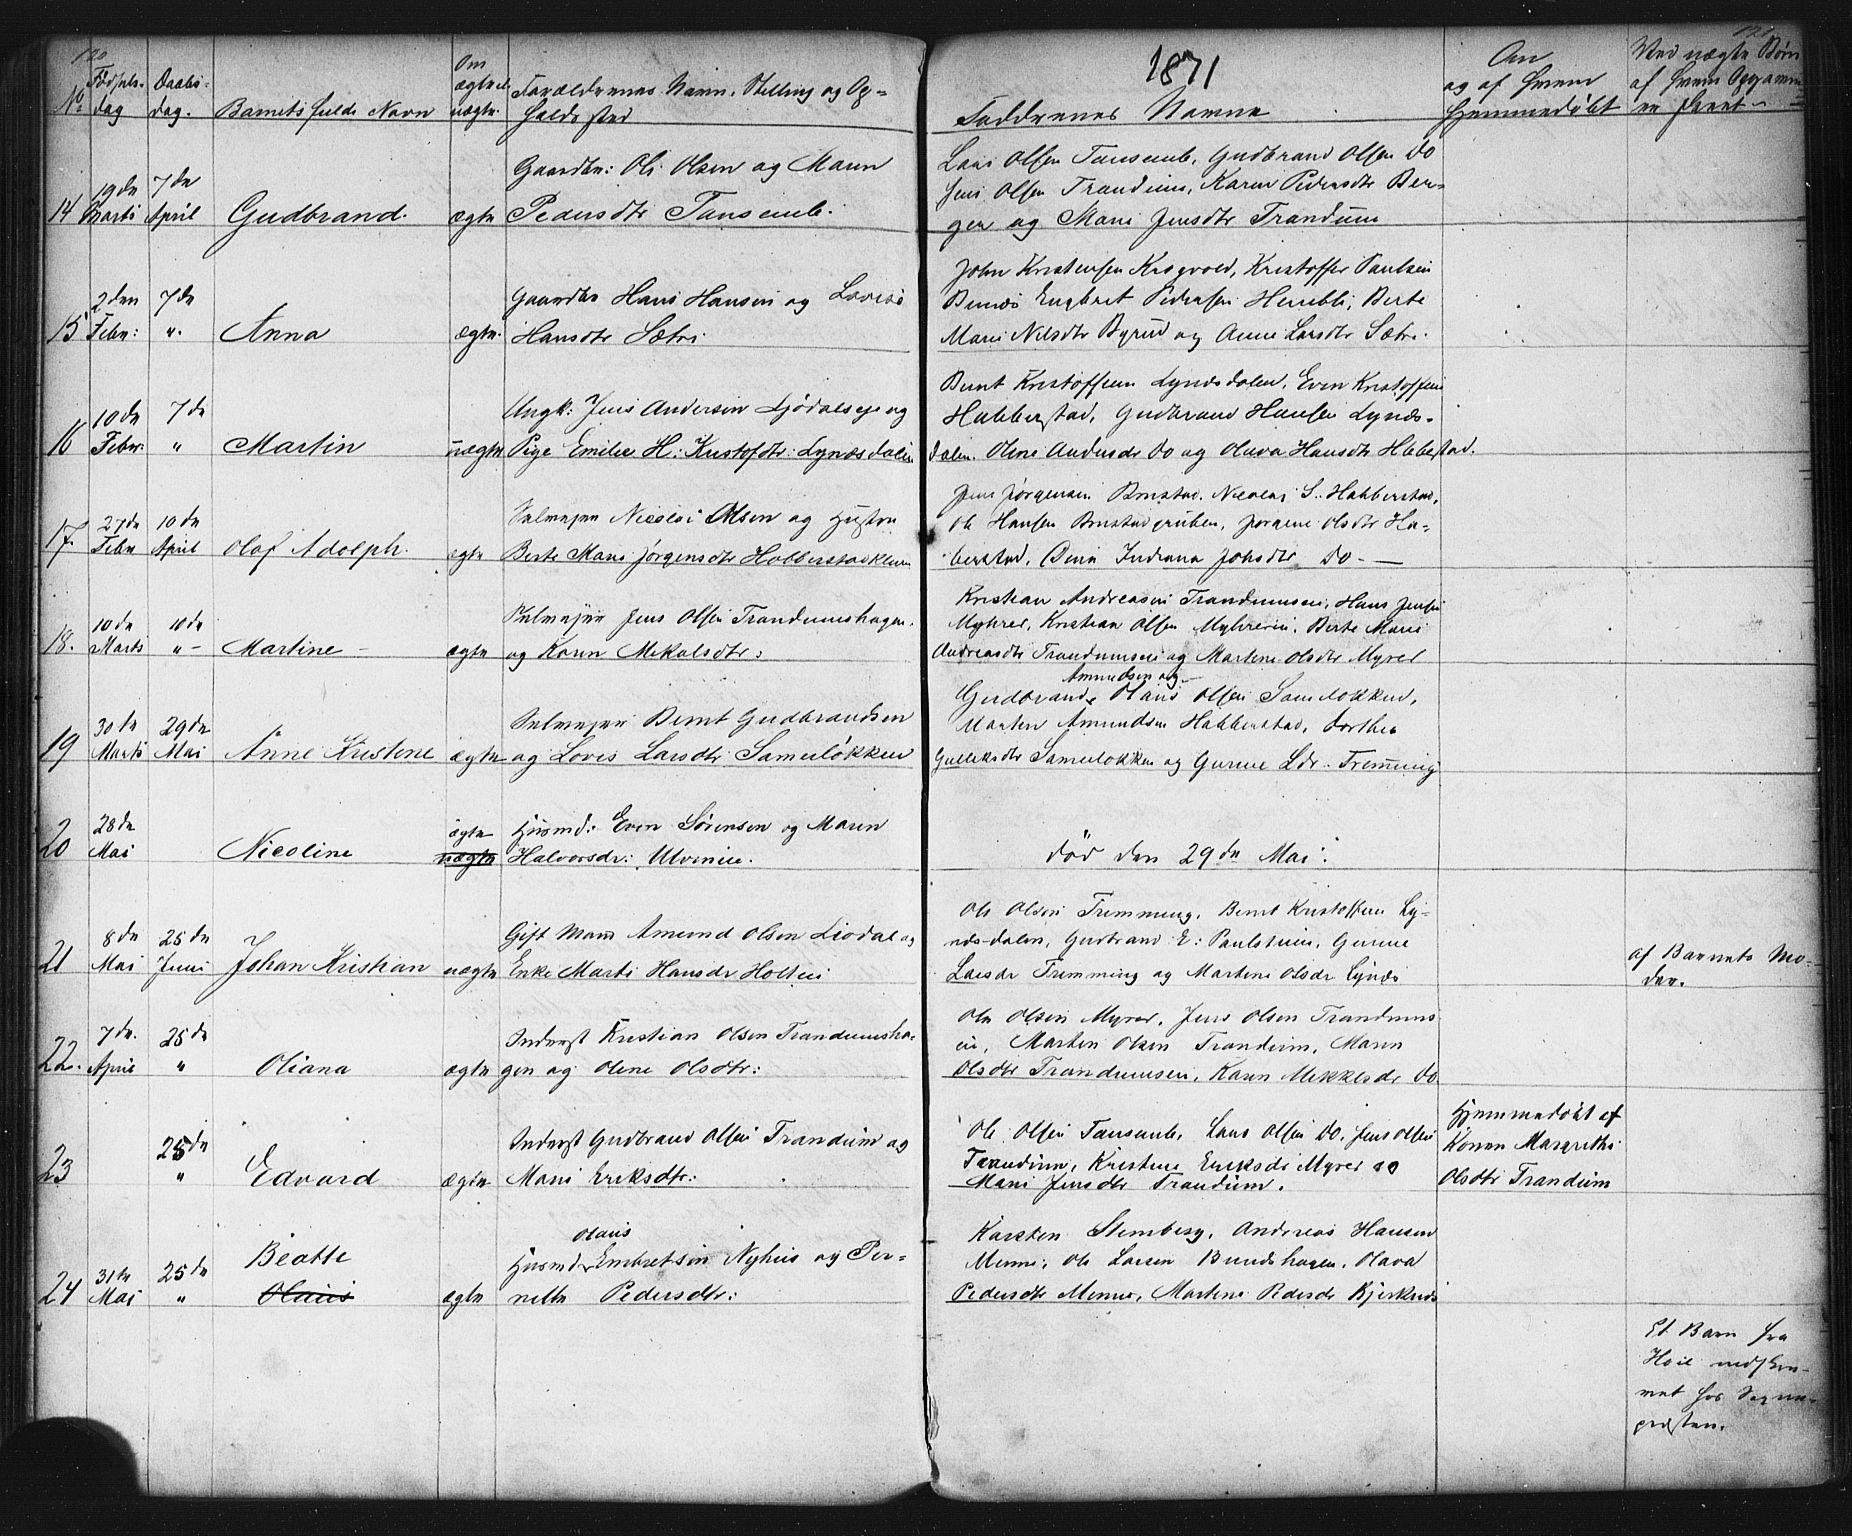 120
1871
No. Fødsels-dag Daabs-dag. Barnets fulde Navn Om ægte el. uægte. Forældrenes Navn, Stilling og Op=
holdssted
Faddernes Navne
Om og af hvem hjemmedøbt
Ved uægte Børn af hvem Opgaven
14 19de Marts 7de April Gudbrand. ægte
Gaardbr: Ole Olsen og Maren
Pedersdtr Tansemb.
Lars Olsen Tansemb, Gudbrand Olsen Do
Jens Olsen Trandum, Karen Pedersdtr Ber=
gen og Mari Jensdtr Trandum
15 2den Febr: 7de ". Anna ægte.
Gaardbr Hans Hansen og Lovise
Hansdtr Sætre
John Kristensen Krogvold, Kristoffer Paulsen
Engbret Pedersen Herrebli, Berte
Marie Nilsdtr Byrud og Anne Larsdtr Sætre.
16 10de Febr: 7de " Martin uægte
Ungk: Jens Andersen Ljødalseje og
Pige Emilie H: Kristofdtr: Lynæsdalen
Bernt Kristoffersen Lynæsdalen, Even Kristoffersen
Habberstad, Gudbrand Hansen Lynæs=
dalen, Oline Andersdtr Do og Oluva Hansdtr Habberstad.
17. 27de Febr 10de April Olaf Adolph. ægte
Selvejer Nicolai Olsen og Hustru
Berte Marie Jørgensdtr Habberstad
Jens Jørgensen Brustad, Nicolai S. Habberstad,
Ole Hansen Brustadgruben, Jørgine Olsdtr Ha=
berstad, Indiana Johsdtr Do - —
18. 10de Marts 10de " - Martine - ægte
Selvejer Jens Olsen Trandumshagen.
og Karen Mikalsdtr:
Kristian Andreasen Trandumseie, Hans Jensen
Myhrer, Kristian Olsen Myhreeie, Berte Marie
Andreasdtr Trandumseie og Martine Olsdtr Myrer
19 30te Marts 29de Mai Anne Kristine ægte
Selvejer Bernt Gudbrandsen
og Lovis Larsdtr Samueløkken
Amundsen og
Gudbrand, Olaus Olsen Samueløkken,
Marten Amundsen Habberstad, Dorthea
Gulliksdtr Samueløkken og Gunne Ldr. Fremming
20 28de Mai Nicoline ægte uægte
Husmd: Even Sørensen og Maren
Halvorsdr: Ulvineie.
død den 29de Mai.
21 8de Mai 25de Juni Johan Kristian uægte
Gift Mand Amund Olsen Liødal og
Enke Marte Hansdr Holteie
Ole Olsen Fremming, Bernt Kristoffersen Ly=
næsdalen, Gudbrand E: Paulseie, Gunne
Larsdr Fremming og Martine Olsdr Lynæs
af Barnets Mo=
der.
22. 7de. April 25de " Oliana ægte
Inderst Kristian Olsen Trandumsha=
gen og Oline Olsdtr:
Ole Olsen Myrer, Jens Olsen Trandums
eie, Marten Olsen Trandum, Maren
Olsdtr Trandumseie, Karen Mikkelsdr Do
23 25de " Edvard ægte
Inderst Gudbrand Olsen Trandum og
Mari Eriksdtr:
Ole Olsen Tansemb, Lars Olsen Do, Jens Olsen
Trandum, Kristine Eriksdr Myrer og
Mari Jensdtr Trandum.
Hjemmedøbt af
Karen Margrethe
Olsdtr Trandum
24 31te Mai 25de " Beatte Olaus ægte
Olaus
Husmd Embretsen Nyhus og Per=
nille Pedersdtr:
Karsten Stensberg, Andreas Hansen
Minne, Ole Larsen Bundshagen, Olava
Pedersdtr Minne, Martine Pedersdr Bjerknæs
Et Barn fra
Hoel indskre=
vet hos Sogne=
præsten.